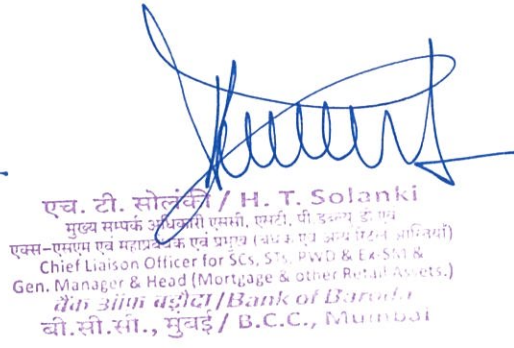 एच. टी. सोलंकी / H. T. Solanki
मुख्य सम्पर्क अधिकारी एससी, एसटी, पी. डब्ल्यू. डी एवं
एक्स-एसएम एवं महाप्रबंधक एवं प्रमुख (बंधक एवं अन्य रिटेल आस्तियाँ)
Chief Liaison Officer for SCs, STs, PWD & Ex-SM &
Gen. Manager & Head (Mortgage & other Retail Assets.)
बैंक ऑफ बड़ौदा / Bank of Baroda
बी.सी.सी., मुंबई / B.C.C., Mumbai